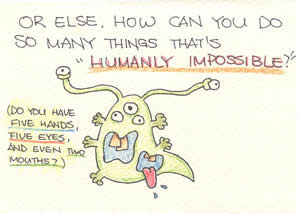 OR ELSE, HOW CAN YOU DO
SO MANY THINGS THAT'S
"HUMANLY IMPOSSIBLE?"
(DO YOU HAVE
FIVE HANDS,
FIVE EYES,
AND EVEN TWO
MOUTHS?)